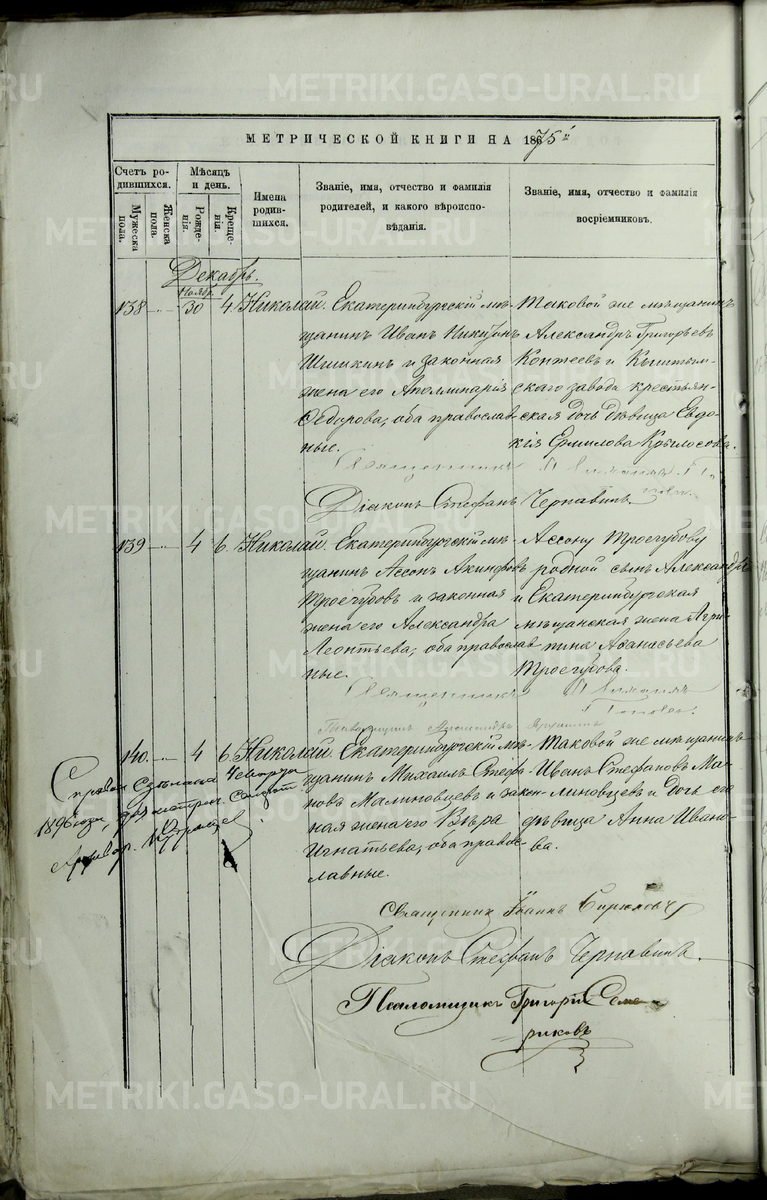 METRIKI.GASO-URAL.RU
МЕТРИЧЕСКОЙ КНИГИ НА 1875й
Счетъ ро-
дившихся.
Мужеска
пола.
Женска
пола.
Мѣсяцъ
и день.
Рожде-
нія.
Креще-
нія.
Имена
родив-
шихся.
Званіе, имя, отчество и фамилія
родителей, и какого вѣроиспо-
вѣданія.
Званіе, имя, отчество и фамилія
воспріемниковъ.
Декабрь.
Ноябр.
138 30 4 Николай. Екатеринбургскій мѣ-
щанинъ Иванъ Никитинъ
Шишкинъ и законная
жена его Аполлинарія
Ѳедорова, оба православ
ные.
Таковой же мѣщанинъ
Александръ Григорьевъ
и Кыштым-
скаго завода крестьян-
ская дочь дѣвица Евдо-
кія Ермилова Крылосова.
Священникъ
Діаконъ Стефанъ Чернавинъ.
139 4 6. Николай. Екатеринбургскій мѣ-
щанинъ Ассонъ Акинфовъ
Троегубовъ и законная
жена его Александра
Леонтьева, оба православ
ные.
Ассону Троегубову
родной сынъ Александръ
и Екатеринбургская
мѣщанская жена Агри-
пина Аѳанасьева
Троегубова.
Священникъ
Попов
140. 4 6. Николай. Екатеринбургскій мѣ-
щанинъ Михаилъ Стефа-
новъ Малиновцевъ и закон-
ная жена его Вѣра
Игнатьева, оба право-
славные.
Таковой же мѣщанинъ
Иванъ Стефановъ Ма-
линовцевъ и дочь его
дѣвица Анна Ивано-
ва.
Справка сдѣлана 4 марта
1896 года, для
Священникъ Іоаннъ Бирюковъ
Діаконъ Стефанъ Чернавинъ.
Псаломщикъ Григорій Семе-
риковъ